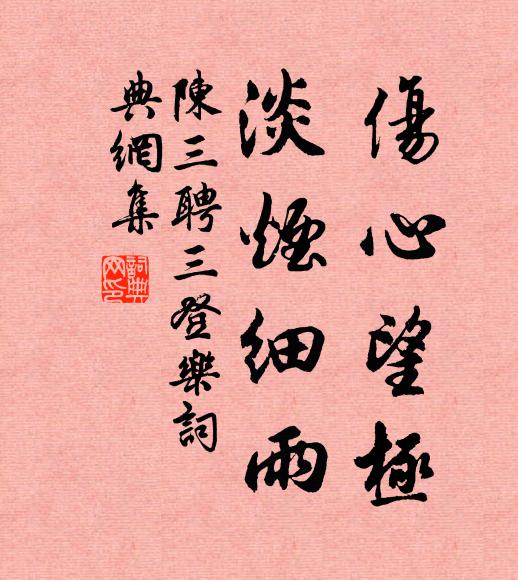 傷心望極
淡煙細雨
陳三聘三登樂詞
典網集
詞典網印